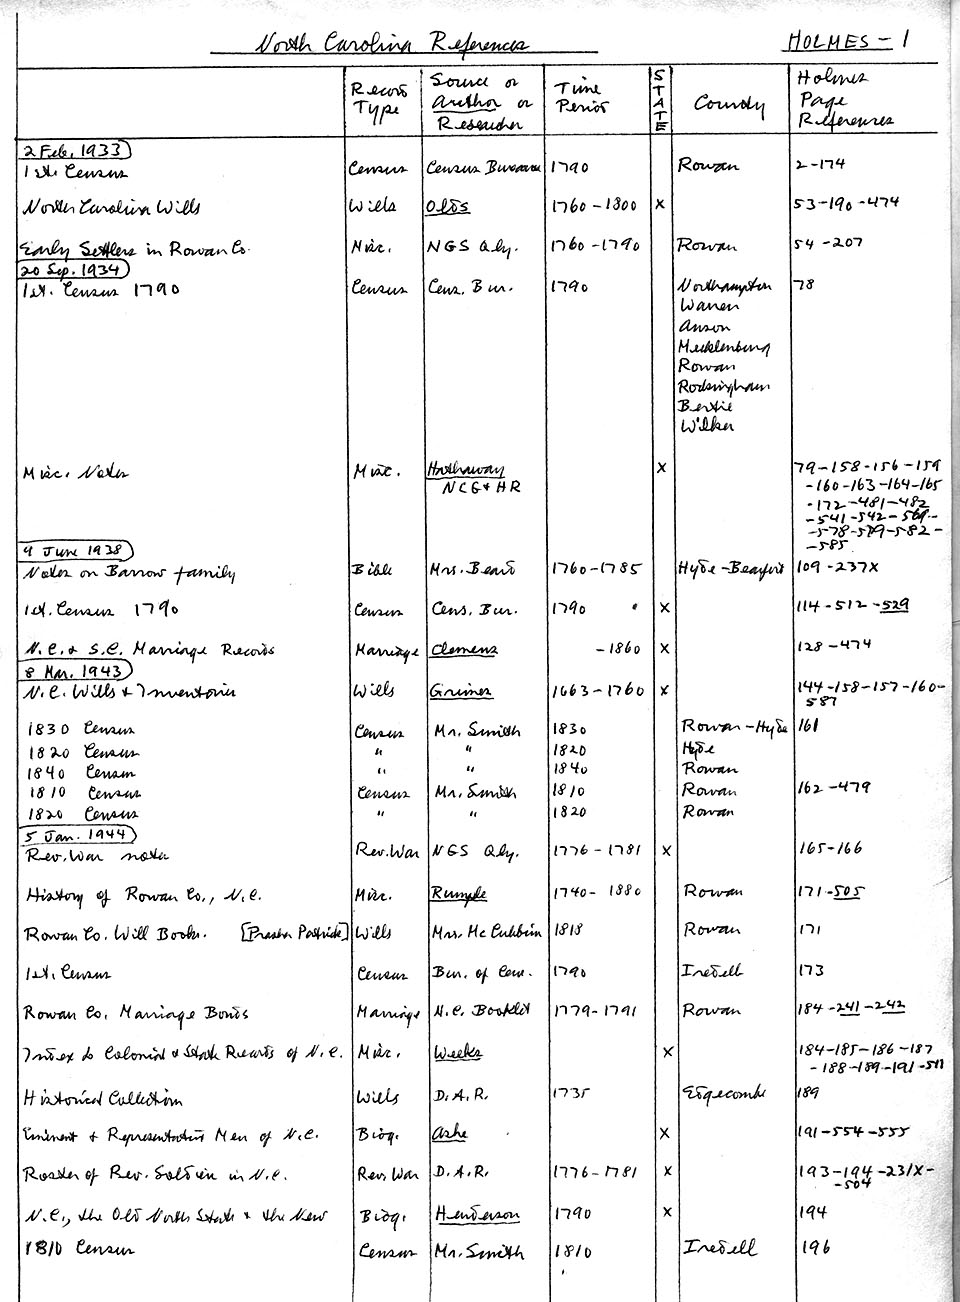 North Carolina References HOLMES - 1
Record Type Source or Author or Researcher Time Period STATE County Holmes Page References
2 Feb. 1933
1st. Census Census Census Bureau 1790 Rowan 2-174
North Carolina Wills Wills Olds 1760-1800 x 53-190-474
Early Settlers in Rowan Co. Misc. NGS Qly. 1760-1790 Rowan 54-207
20 Sep. 1934
1st. Census 1790 Census Cens. Bur. 1790 Northampton 78
Warren
Anson
Mecklenburg
Rowan
Rockingham
Bertie
Wilkes
Misc. Notes Misc. Hathaway x 79-158-156-159
NCG & HR -160-163-164-165
-172-481-482
-541-542-569-
-578-579-582-
-585
9 June 1938
Notes on Barrow family Bible Mrs. Beard 1760-1785 Hyde-Beaufort 109-237X
1st. Census 1790 Census Cens. Bur. 1790 x 114-512-529
N.C. & S.C. Marriage Records Marriage Clemens -1860 x 128-474
8 Mar. 1943
N.C. Wills & Inventories Wills Grimes 1663-1760 x 144-158-157-160-
587
1830 Census Census Mr. Smith 1830 Rowan-Hyde 161
1820 Census " " 1820 Hyde
1840 Census " " 1840 Rowan
1810 Census Census Mr. Smith 1810 Rowan 162-479
1820 Census " " 1820 Rowan
5 Jan. 1944
Rev. War notes Rev. War NGS Qly. 1776-1781 x 165-166
History of Rowan Co., N.C. Misc. Rumple 1740-1880 Rowan 171-505
Rowan Co. Will Books. Wills Mrs. McCubbin 1818 Rowan 171
1st. Census Census Bur. of Cen. 1790 Iredell 173
Rowan Co. Marriage Bonds Marriage N.C. Booklet 1779-1791 Rowan 184-241-242
Index to Colonial & State Records of N.C. Misc. Weeks x 184-185-186-187
-188-189-191-511
Historical Collection Wills D.A.R. 1735 Edgecombe 189
Eminent & Representative Men of N.C. Biog. Ashe x 191-554-555
Roster of Rev. Soldiers in N.C. Rev. War D.A.R. 1776-1781 x 193-194-231X-
-504
N.C., the Old North State & the New Biog. Henderson 1790 x 194
1810 Census Census Mr. Smith 1810 Iredell 196